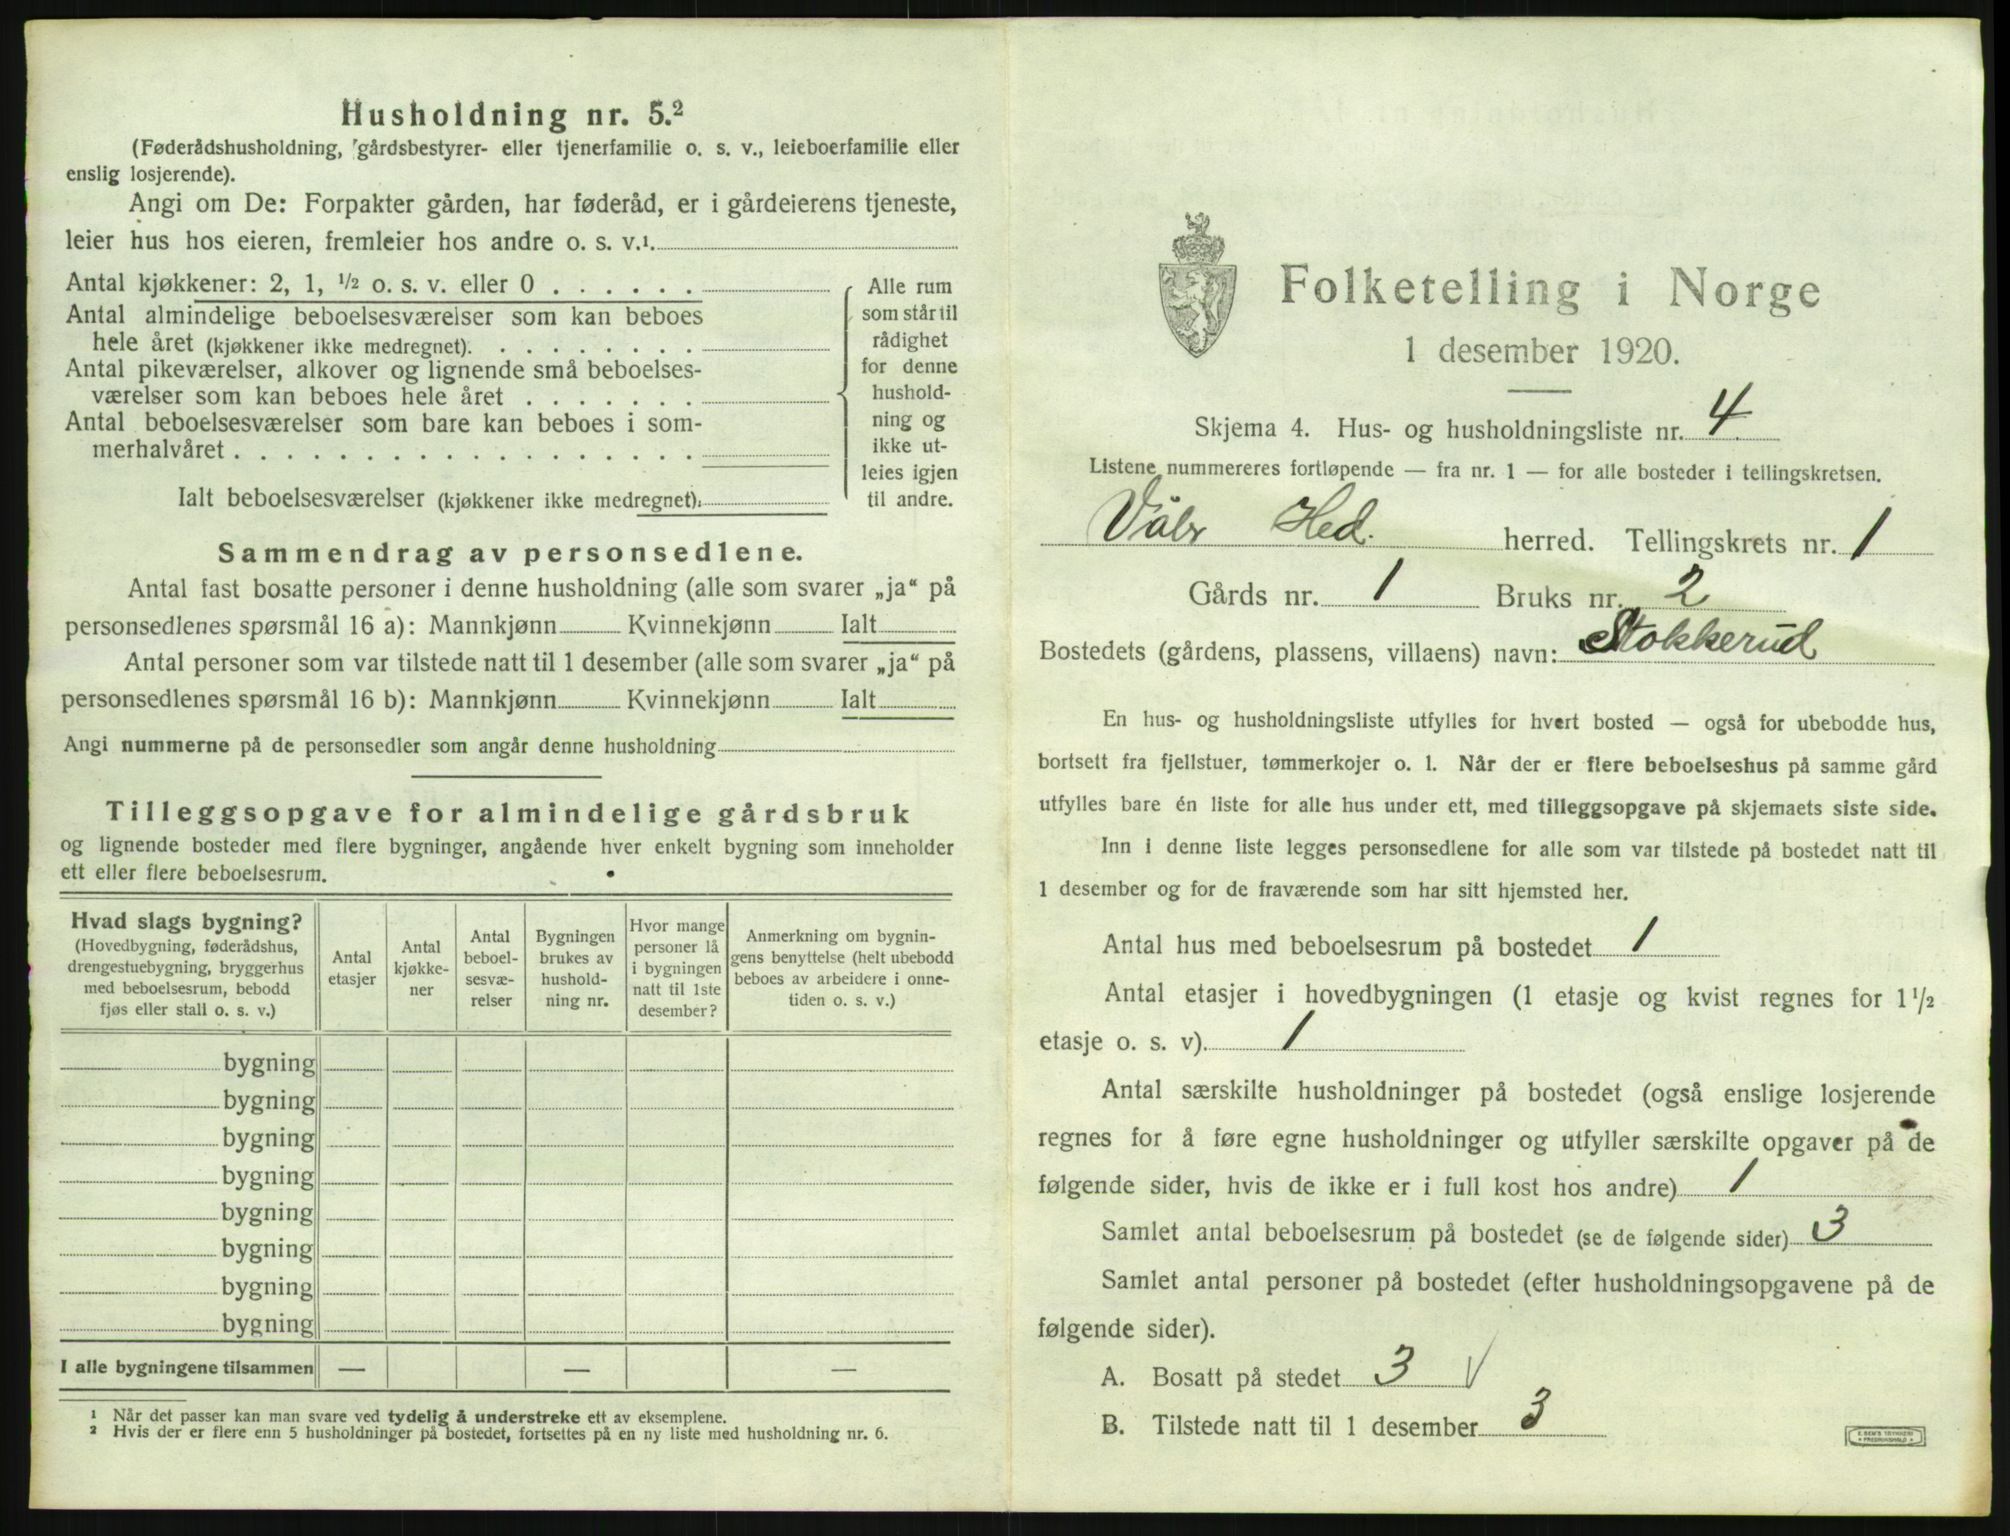 Husholdning nr. 5.²
(Føderådshusholdning, gårdsbestyrer- eller tjenerfamilie o. s. v., leieboerfamilie eller
enslig losjerende).
Angi om De: Forpakter gården, har føderåd, er i gårdeierens tjeneste,
leier hus hos eieren, fremleier hos andre o. s. v.¹
Antal kjøkkener: 2, 1, ½ o. s. v. eller 0 . . . . . .
Antal almindelige beboelsesværelser som kan beboes
hele året (kjøkkener ikke medregnet). . . . . . . . .
Antal pikeværelser, alkover og lignende små beboelses-
værelser som kan beboes hele året . . . . . . .
Antal beboelsesværelser som bare kan beboes i som-
merhalvåret . . . . . . . . . . . . . . . . . .
Ialt beboelsesværelser (kjøkkener ikke medregnet):
Alle rum
som står til
rådighet
for denne
hushold-
ning og
ikke ut-
leies igjen
til andre.
Sammendrag av personsedlene.
Antal fast bosatte personer i denne husholdning (alle som svarer „ja“ på
personsedlenes spørsmål 16 a): Mannkjønn Kvinnekjønn Ialt
Antal personer som var tilstede natt til 1 desember (alle som svarer „ja“ på
personsedlenes spørsmål 16 b): Mannkjønn Kvinnekjønn Ialt
Angi nummerne på de personsedler som angår denne husholdning
Tilleggsopgave for almindelige gårdsbruk
og lignende bosteder med flere bygninger, angående hver enkelt bygning som inneholder
ett eller flere beboelsesrum.
Hvad slags bygning?
(Hovedbygning, føderådshus,
drengestuebygning, bryggerhus
med beboelsesrum, bebodd
fjøs eller stall o. s. v.)
Antal
etasjer
Antal
kjøkke-
ner
Antal
beboel-
sesvæ-
relser
Bygningen
brukes av
hushold-
ning nr.
Hvor mange
personer lå
i bygningen
natt til 1ste
desember?
Anmerkning om bygnin-
gens benyttelse (helt ubebodd
beboes av arbeidere i onne-
tiden o. s. v.)
bygning
bygning
bygning
bygning
bygning
bygning
bygning
bygning
I alle bygningene tilsammen — — —
¹ Når det passer kan man svare ved tydelig å understreke ett av eksemplene.
² Hvis der er flere enn 5 husholdninger på bostedet, fortsettes på en ny liste med husholdning nr. 6.
Folketelling i Norge
1 desember 1920.
Skjema 4. Hus- og husholdningsliste nr. 4.
Listene nummereres fortløpende — fra nr. 1 — for alle bosteder i tellingskretsen.
Våler Hed. herred. Tellingskrets nr. 1
Gårds nr. 1 Bruks nr. 2
Bostedets (gårdens, plassens, villaens) navn: Stokkerud
En hus- og husholdningsliste utfylles for hvert bosted — også for ubebodde hus,
bortsett fra fjellstuer, tømmerkojer o. l. Når der er flere beboelseshus på samme gård
utfylles bare én liste for alle hus under ett, med tilleggsopgave på skjemaets siste side.
Inn i denne liste legges personsedlene for alle som var tilstede på bostedet natt til
1 desember og for de fraværende som har sitt hjemsted her.
Antal hus med beboelsesrum på bostedet 1
Antal etasjer i hovedbygningen (1 etasje og kvist regnes for 1 ½
etasje o. s. v). 1
Antal særskilte husholdninger på bostedet (også enslige losjerende
regnes for å føre egne husholdninger og utfyller særskilte opgaver på de
følgende sider, hvis de ikke er i full kost hos andre) 1
Samlet antal beboelsesrum på bostedet (se de følgende sider) 3
Samlet antal personer på bostedet (efter husholdningsopgavene på de
følgende sider).
A. Bosatt på stedet 3 √
B. Tilstede natt til 1 desember 3
E. SEM'S TRYKKERI
FREDRIKSHALD